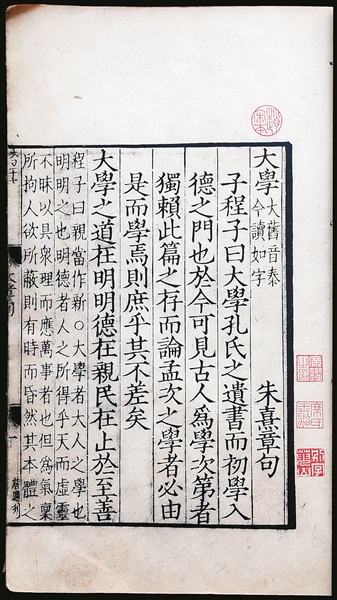 大學 大舊音泰今讀如字 朱熹章句
子程子曰大學孔氏之遺書而初學入
德之門也於今可見古人爲學次第者
獨賴此篇之存而論孟次之學者必由
是而學焉則庶乎其不差矣
大學之道在明明德在親民在止於至善
程子曰親當作新○大學者大人之學也
明明之也明德者人之所得乎天而虛靈
不昧以具衆理而應萬事者也但爲氣稟
所拘人欲所蔽則有時而昏然其本體之